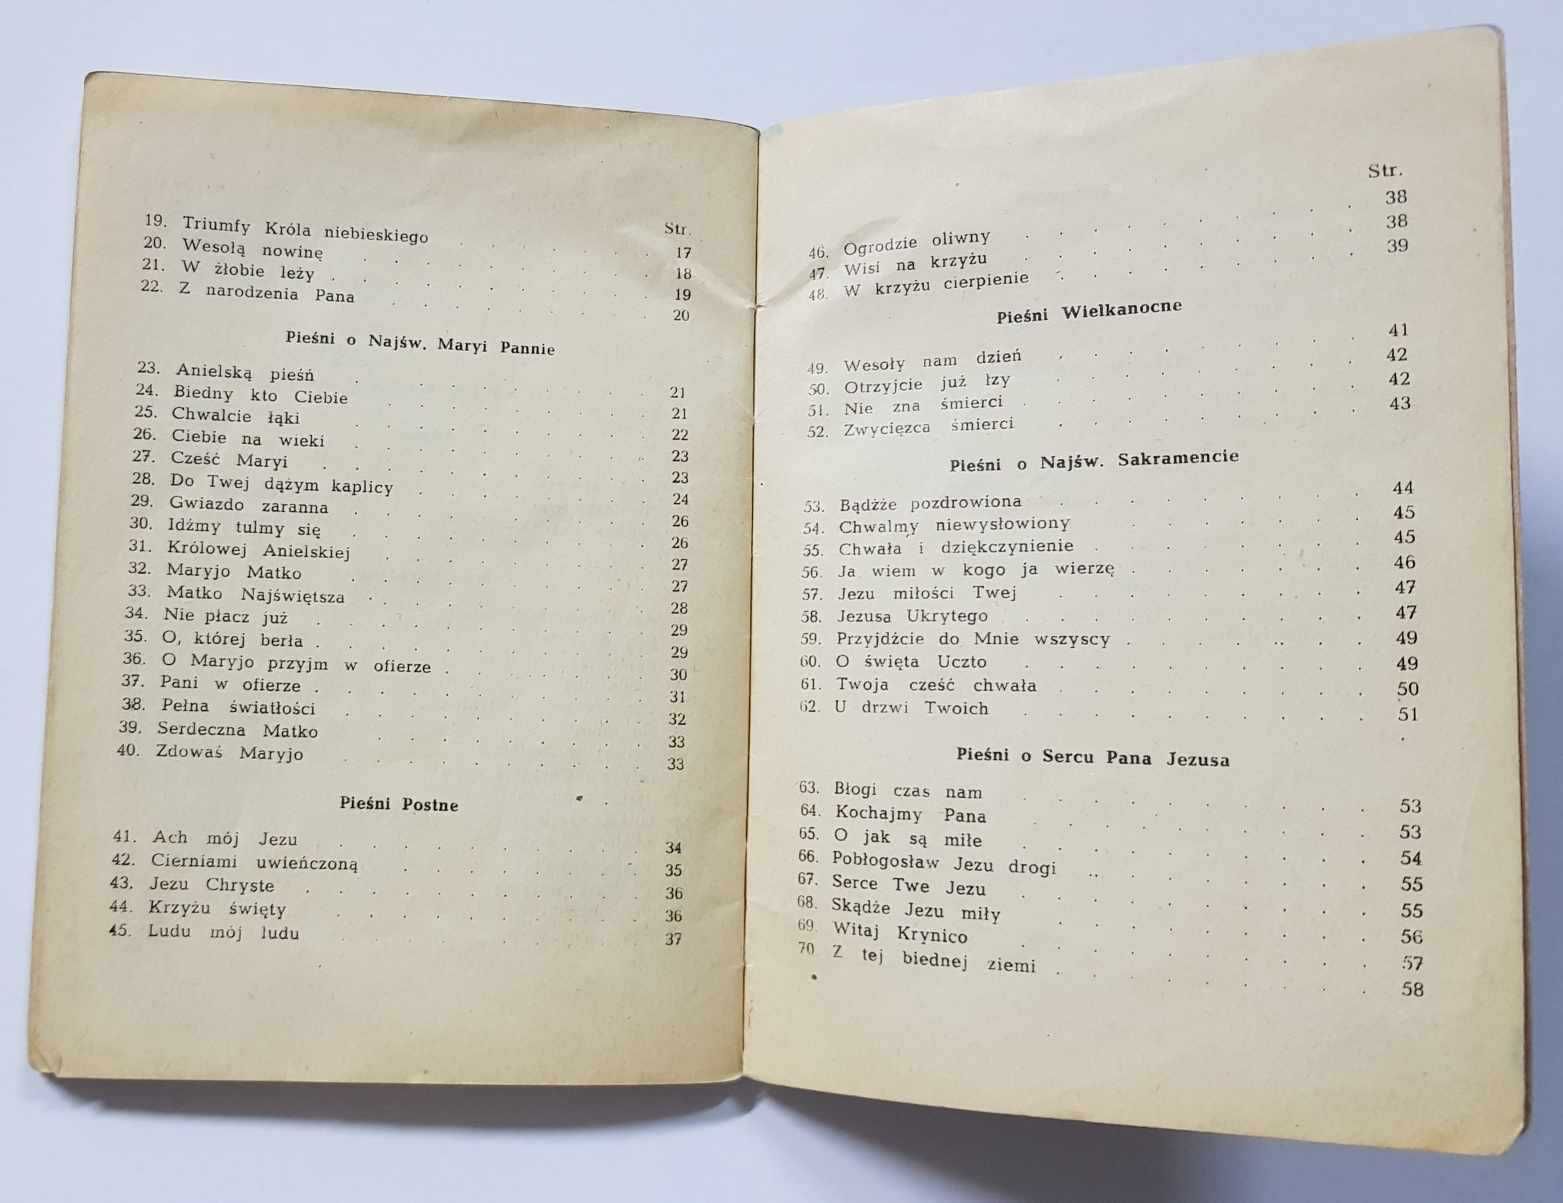 Str.
19. Triumfy Króla niebieskiego 17
20. Wesołą nowinę 18
21. W żłobie leży 19
22. Z narodzenia Pana 20
Pieśni o Najśw. Maryi Pannie
23. Anielską pieśń 21
24. Biedny kto Ciebie 21
25. Chwalcie łąki 22
26. Ciebie na wieki 23
27. Cześć Maryi 23
28. Do Twej dążym kaplicy 24
29. Gwiazdo zaranna 26
30. Idźmy tulmy się 26
31. Królowej Anielskiej 27
32. Maryjo Matko 27
33. Matko Najświętsza 28
34. Nie płacz już 29
35. O, której berła 29
36. O Maryjo przyjm w ofierze 30
37. Pani w ofierze 31
38. Pełna światłości 32
39. Serdeczna Matko 33
40. Zdowaś Maryjo 33
Pieśni Postne
41. Ach mój Jezu 34
42. Cierniami uwieńczoną 35
43. Jezu Chryste 36
44. Krzyżu święty 36
45. Ludu mój ludu 37
Str.
46. Ogrodzie oliwny 38
47. Wisi na krzyżu 38
48. W krzyżu cierpienie 39
Pieśni Wielkanocne
49. Wesoły nam dzień 41
50. Otrzyjcie już łzy 42
51. Nie zna śmierci 42
52. Zwycięzca śmierci 43
Pieśni o Najśw. Sakramencie
53. Bądźże pozdrowiona 44
54. Chwalmy niewysłowiony 45
55. Chwała i dziękczynienie 45
56. Ja wiem w kogo ja wierzę 46
57. Jezu miłości Twej 47
58. Jezusa Ukrytego 47
59. Przyjdźcie do Mnie wszyscy 49
60. O święta Uczto 49
61. Twoja cześć chwała 50
62. U drzwi Twoich 51
Pieśni o Sercu Pana Jezusa
63. Błogi czas nam 53
64. Kochajmy Pana 53
65. O jak są miłe 54
66. Pobłogosław Jezu drogi 55
67. Serce Twe Jezu 55
68. Skądże Jezu miły 56
69. Witaj Krynico 57
70 Z tej biednej ziemi 58